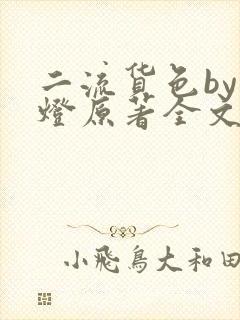 二流货色by
燈原著全文
小飛鳥大和田